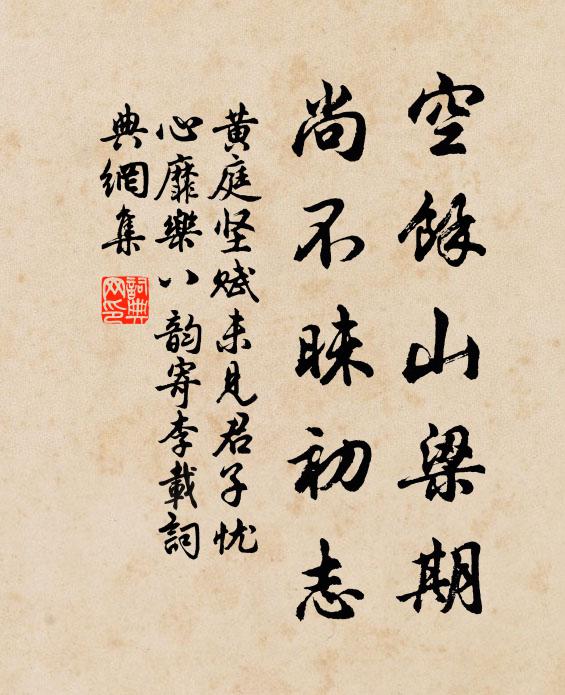 空餘山梁期
尚不昧初志
黄庭坚赋未见君子忧
心靡樂八韵寄李載詞
典網集
詞典
网印